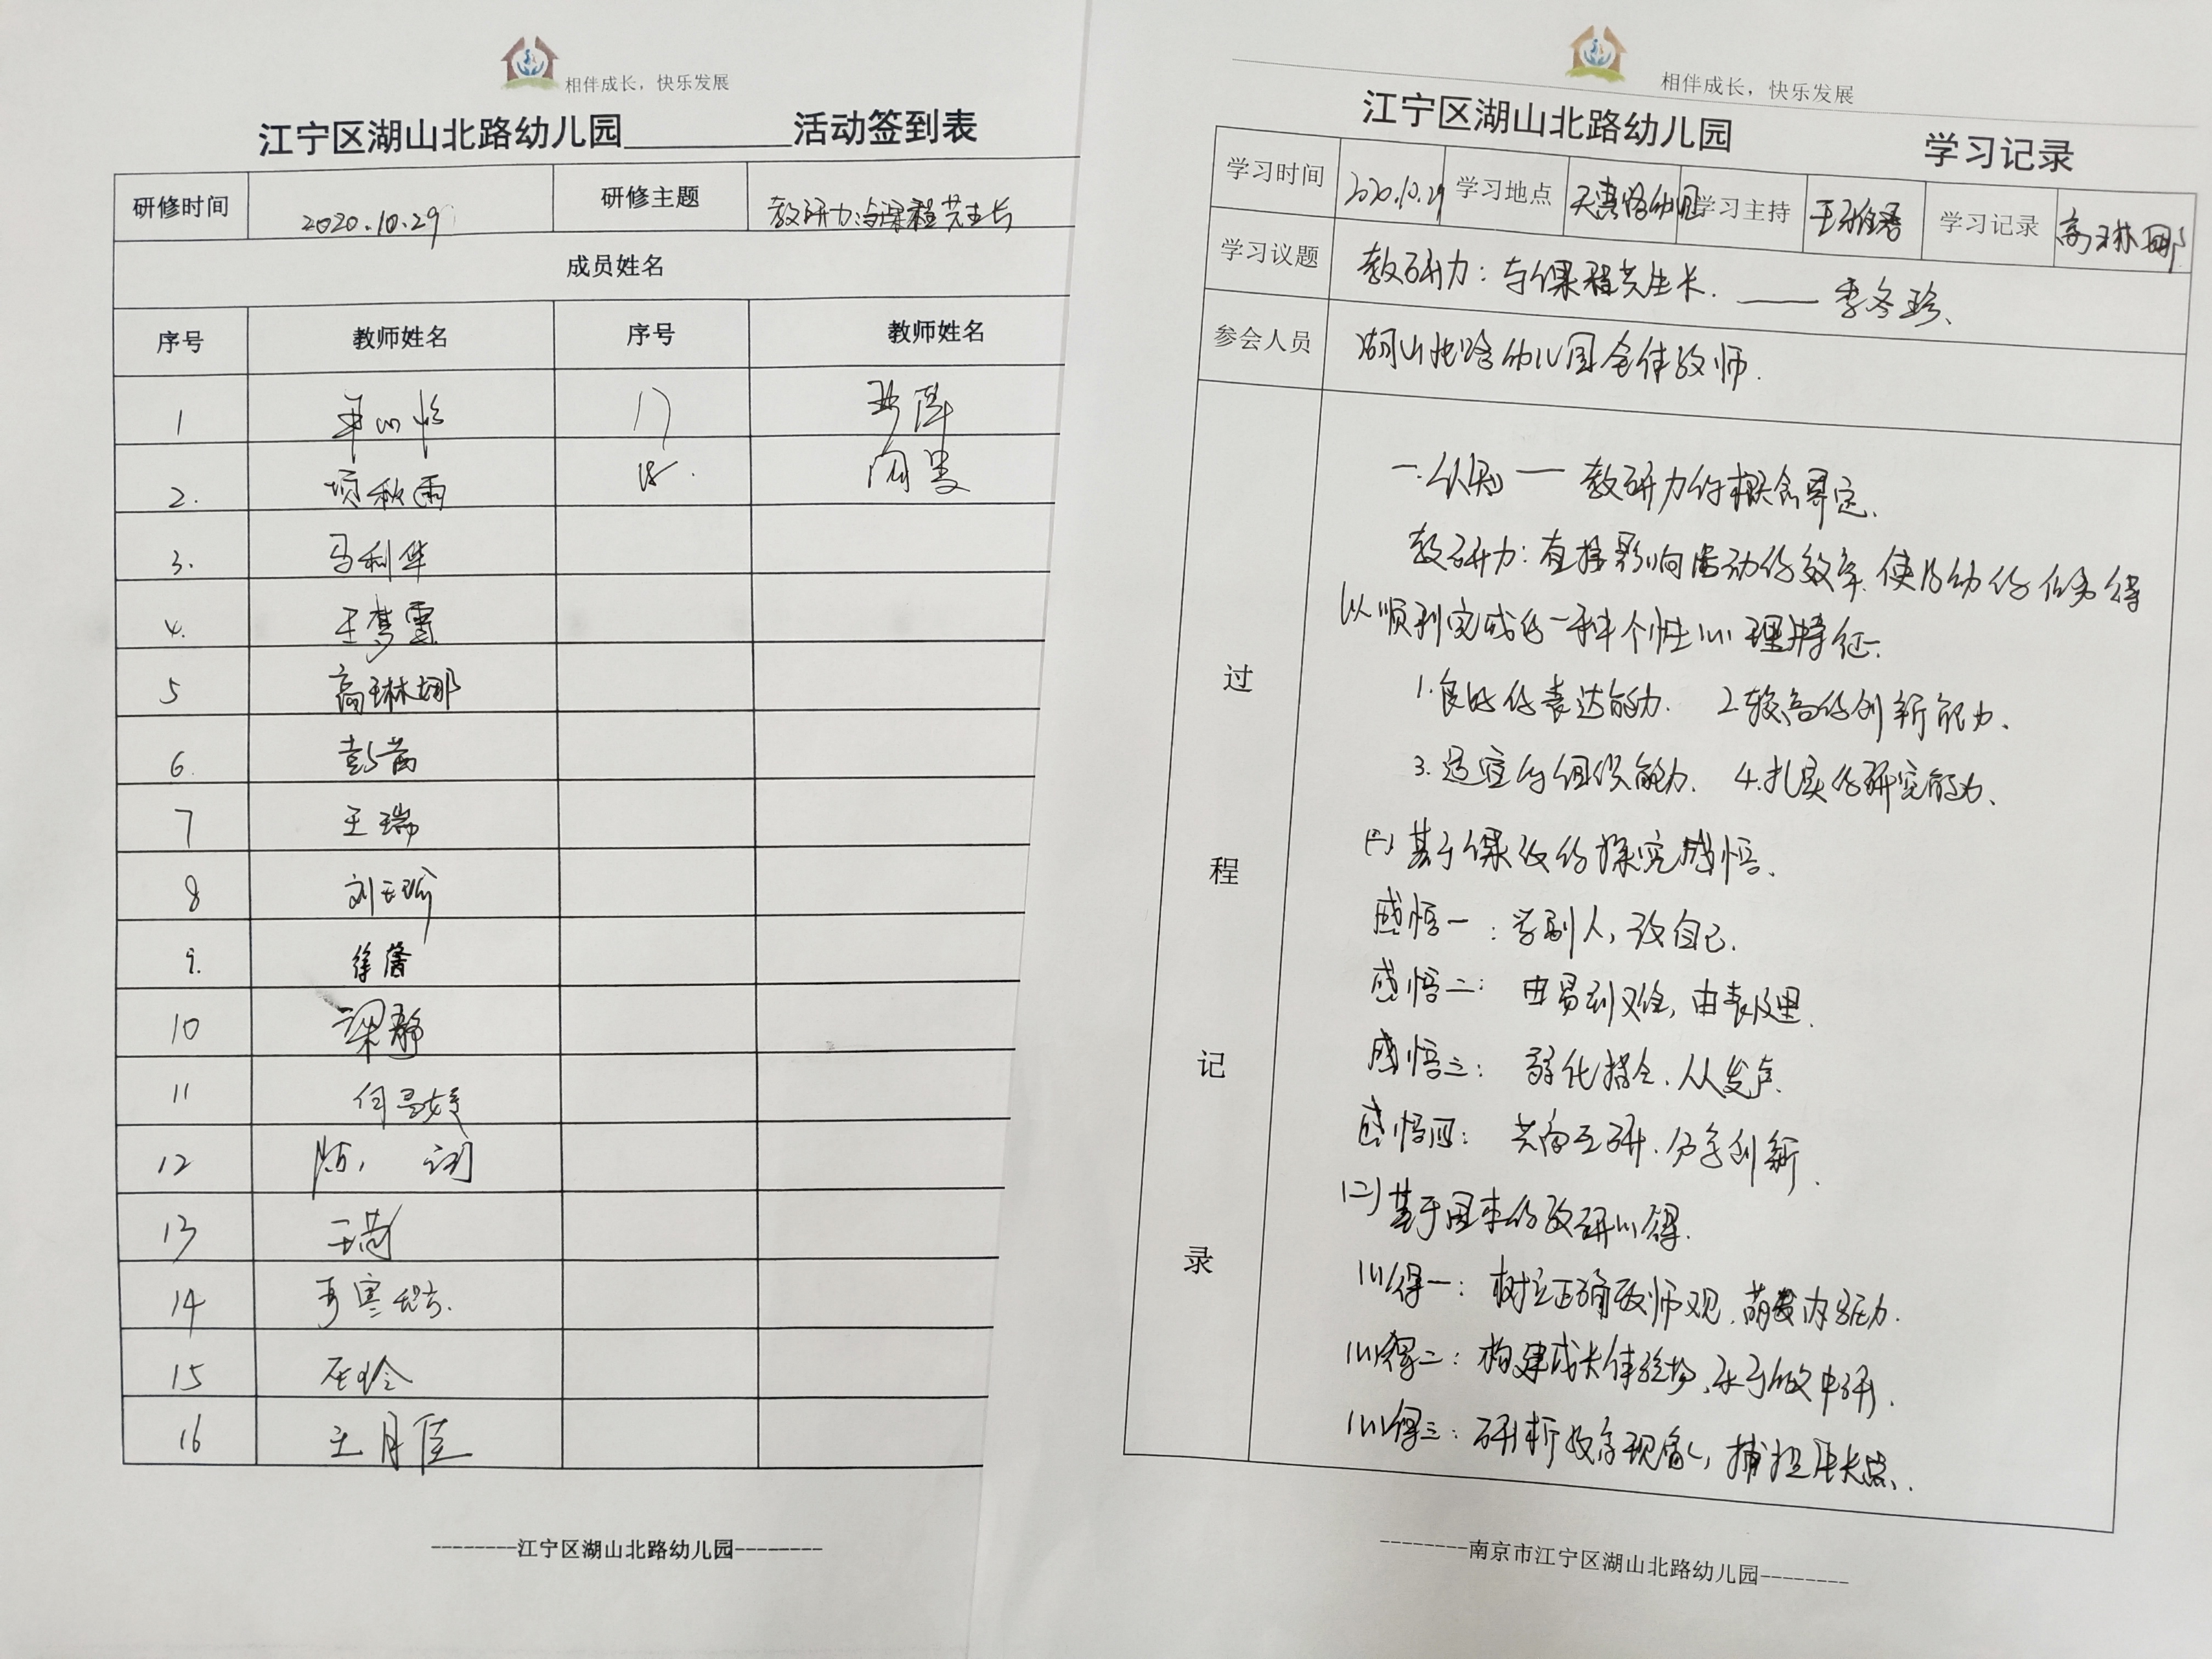 相伴成长，快乐发展
江宁区湖山北路幼儿园________活动签到表
研修时间 2020.10.29 研修主题 教研力:与课程共生长
成员姓名
序号 教师姓名 序号 教师姓名
1 17
2. 项秋雨 18. 陶雯
3. 马利华
4. 王梦雪
5 高琳娜
6. 彭茜
7 王瑞
8 刘玉瑜
9. 徐蕾
10 梁静
11
12 陈
13
14
15
16 王月佳
--------江宁区湖山北路幼儿园--------
相伴成长，快乐发展
江宁区湖山北路幼儿园 学习记录
学习时间 2020.10.29 学习地点 天景路幼儿园 学习主持 学习记录 高琳娜
学习议题 教研力：与课程共生长. —— 季冬珍、
参会人员 湖山北路幼儿园全体教师.
过程记录
一.认知 — 教研力的概念界定.
教研力：直接影响活动的效率.使活动的任务得
以顺利完成的一种个性心理特征.
1.良好的表达能力. 2.较高的创新能力.
3.适宜的组织能力. 4.扎实的研究能力.
(一)基于课改的探究感悟.
感悟一：学别人，改自己.
感悟二：由易到难，由表及里.
感悟三：弱化指令.人人发声.
感悟四：共同互研.分享创新.
(二)基于园本的教研心得.
心得一：树立正确教师观.萌发内驱力.
心得二：构建成长体验场.乐于做中研.
心得三：研析教育现象，捕捉生长点.
--------南京市江宁区湖山北路幼儿园--------